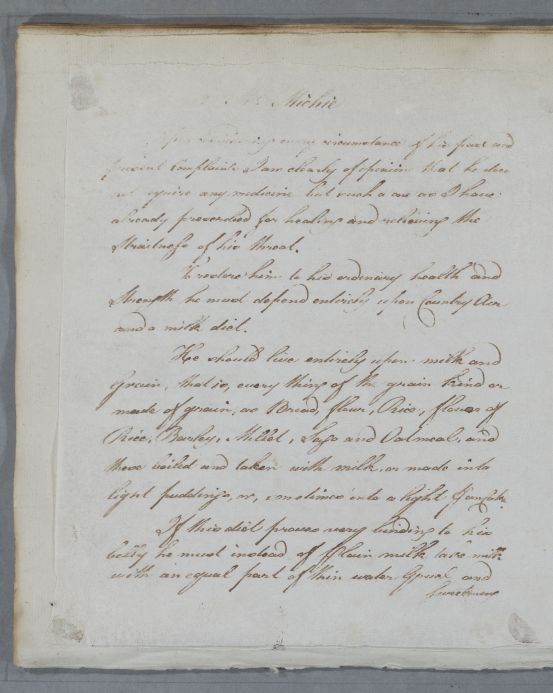 Mr Michie
After considering every circumstance of his past and
present complaints I am clearly of opinion that he does
not require any medicine but such a one as I have
already prescribed for healing and relieving the
Straitness of his throat.
To restore him to his ordinary health and
Strength he must depend entirely upon Country Air
and a milk diet.
He should live entirely upon milk and
Grain, that is, every thing of the grain kind or
made of grain, as Bread, flour, Rice, flower of
Rice, Barley, Millet, Sago and Oatmeal, and
these boiled and taken with milk, or made into
light puddings, or, sometimes into a light
If this diet proves very binding to his
belly he must instead of plain milk take milk
with an equal part of thin water Gruel and
Sweetmeat